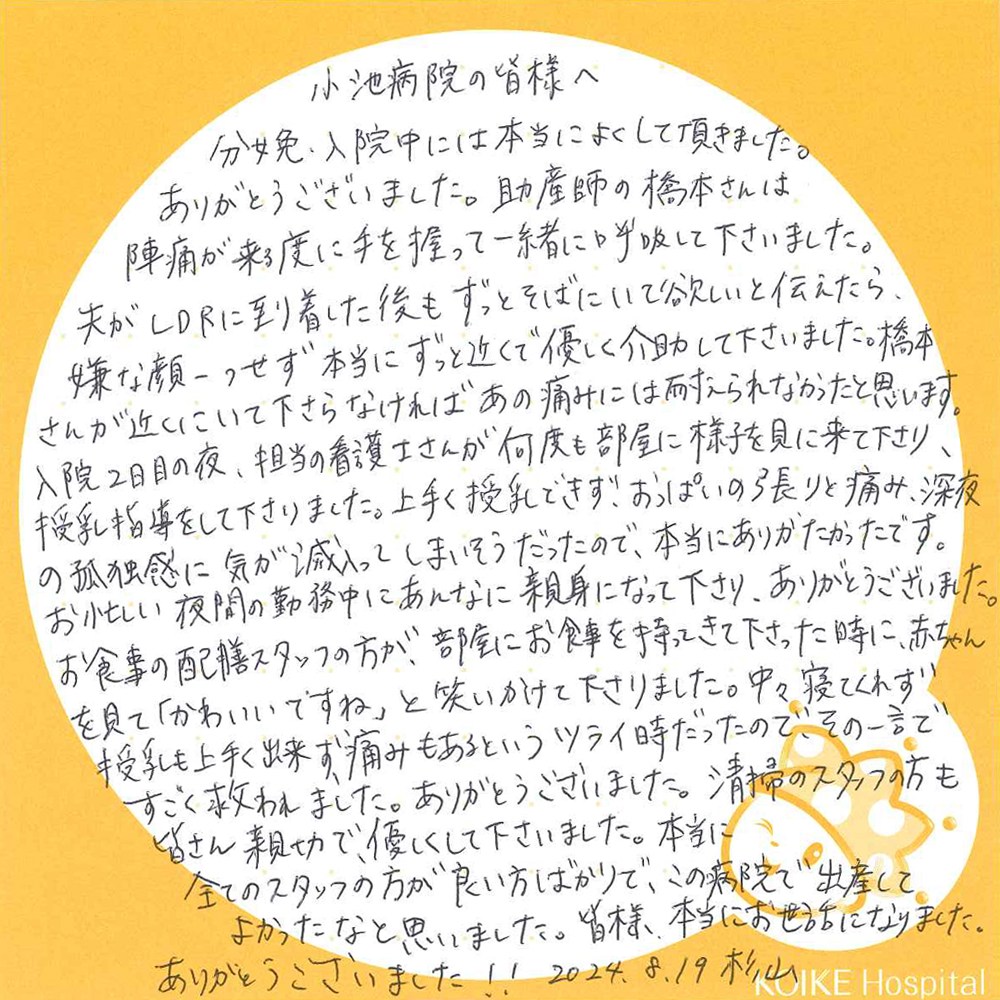 小池病院の皆様へ
分娩、入院中には本当によくして頂きました。
ありがとうございました。助産師の橋本さんは
陣痛が来る度に手を握って一緒に呼吸して下さいました。
夫がLDRに到着した後もずっとそばにいて欲しいと伝えたら、
嫌な顔一つせず本当にずっと近くで優しく介助して下さいました。橋本
さんが近くにいて下さらなければあの痛みには耐えられなかったと思います。
入院2日目の夜、担当の看護士さんが何度も部屋に様子を見に来て下さり、
授乳指導をして下さりました。上手く授乳できず、おっぱいの張りと痛み、深夜
の孤独感に気が滅入ってしまいそうだったので、本当にありがたかったです。
お忙しい夜間の勤務中にあんなに親身になって下さり、ありがとうございました。
お食事の配膳スタッフの方が、部屋にお食事を持ってきて下さった時に、赤ちゃん
を見て「かわいいですね」と笑いかけて下さりました。中々寝てくれず
授乳も上手く出来ず、痛みもあるというツライ時だったので、その一言で
すごく救われました。ありがとうございました。清掃のスタッフの方も
皆さん親切で、優しくして下さいました。本当に
全てのスタッフの方が良い方ばかりで、この病院で出産して
よかったなと思いました。皆様、本当にお世話になりました。
ありがとうございました!! 2024.8.19 杉山
KOIKE Hospital